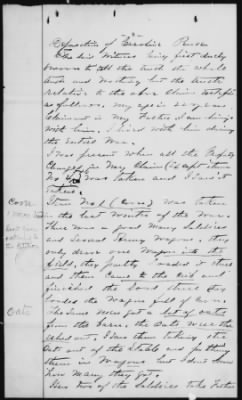 Deposition of
The said Witness being first duly
sworn to tell the truth the whole
truth and nothing but the truth
relative to the above Claim testifies
as follows. My age is 22 years.
Claimant is my Father I am living
with him. I lived with him during
the entire War.
I was present when all the Property
Charged in this Claim (
No was taken and I saw it
taken.
Corn
Item No 1 (Corn) was taken
in the last months of the War.
There was a good many Soldiers
and Several Army Wagons, they
only drove one Wagon into the
field, they partly loaded it there
and then Came to the Crib and
finished the Load there they
loaded the Wagon full of Corn.
Oats
The same men got a lot of oats
from the Barn, the Oats were
out. I saw them taking the
Oats out of the Stable and putting
them in Wagons but I dont know
how many they got.
Item two of the Soldiers take Father